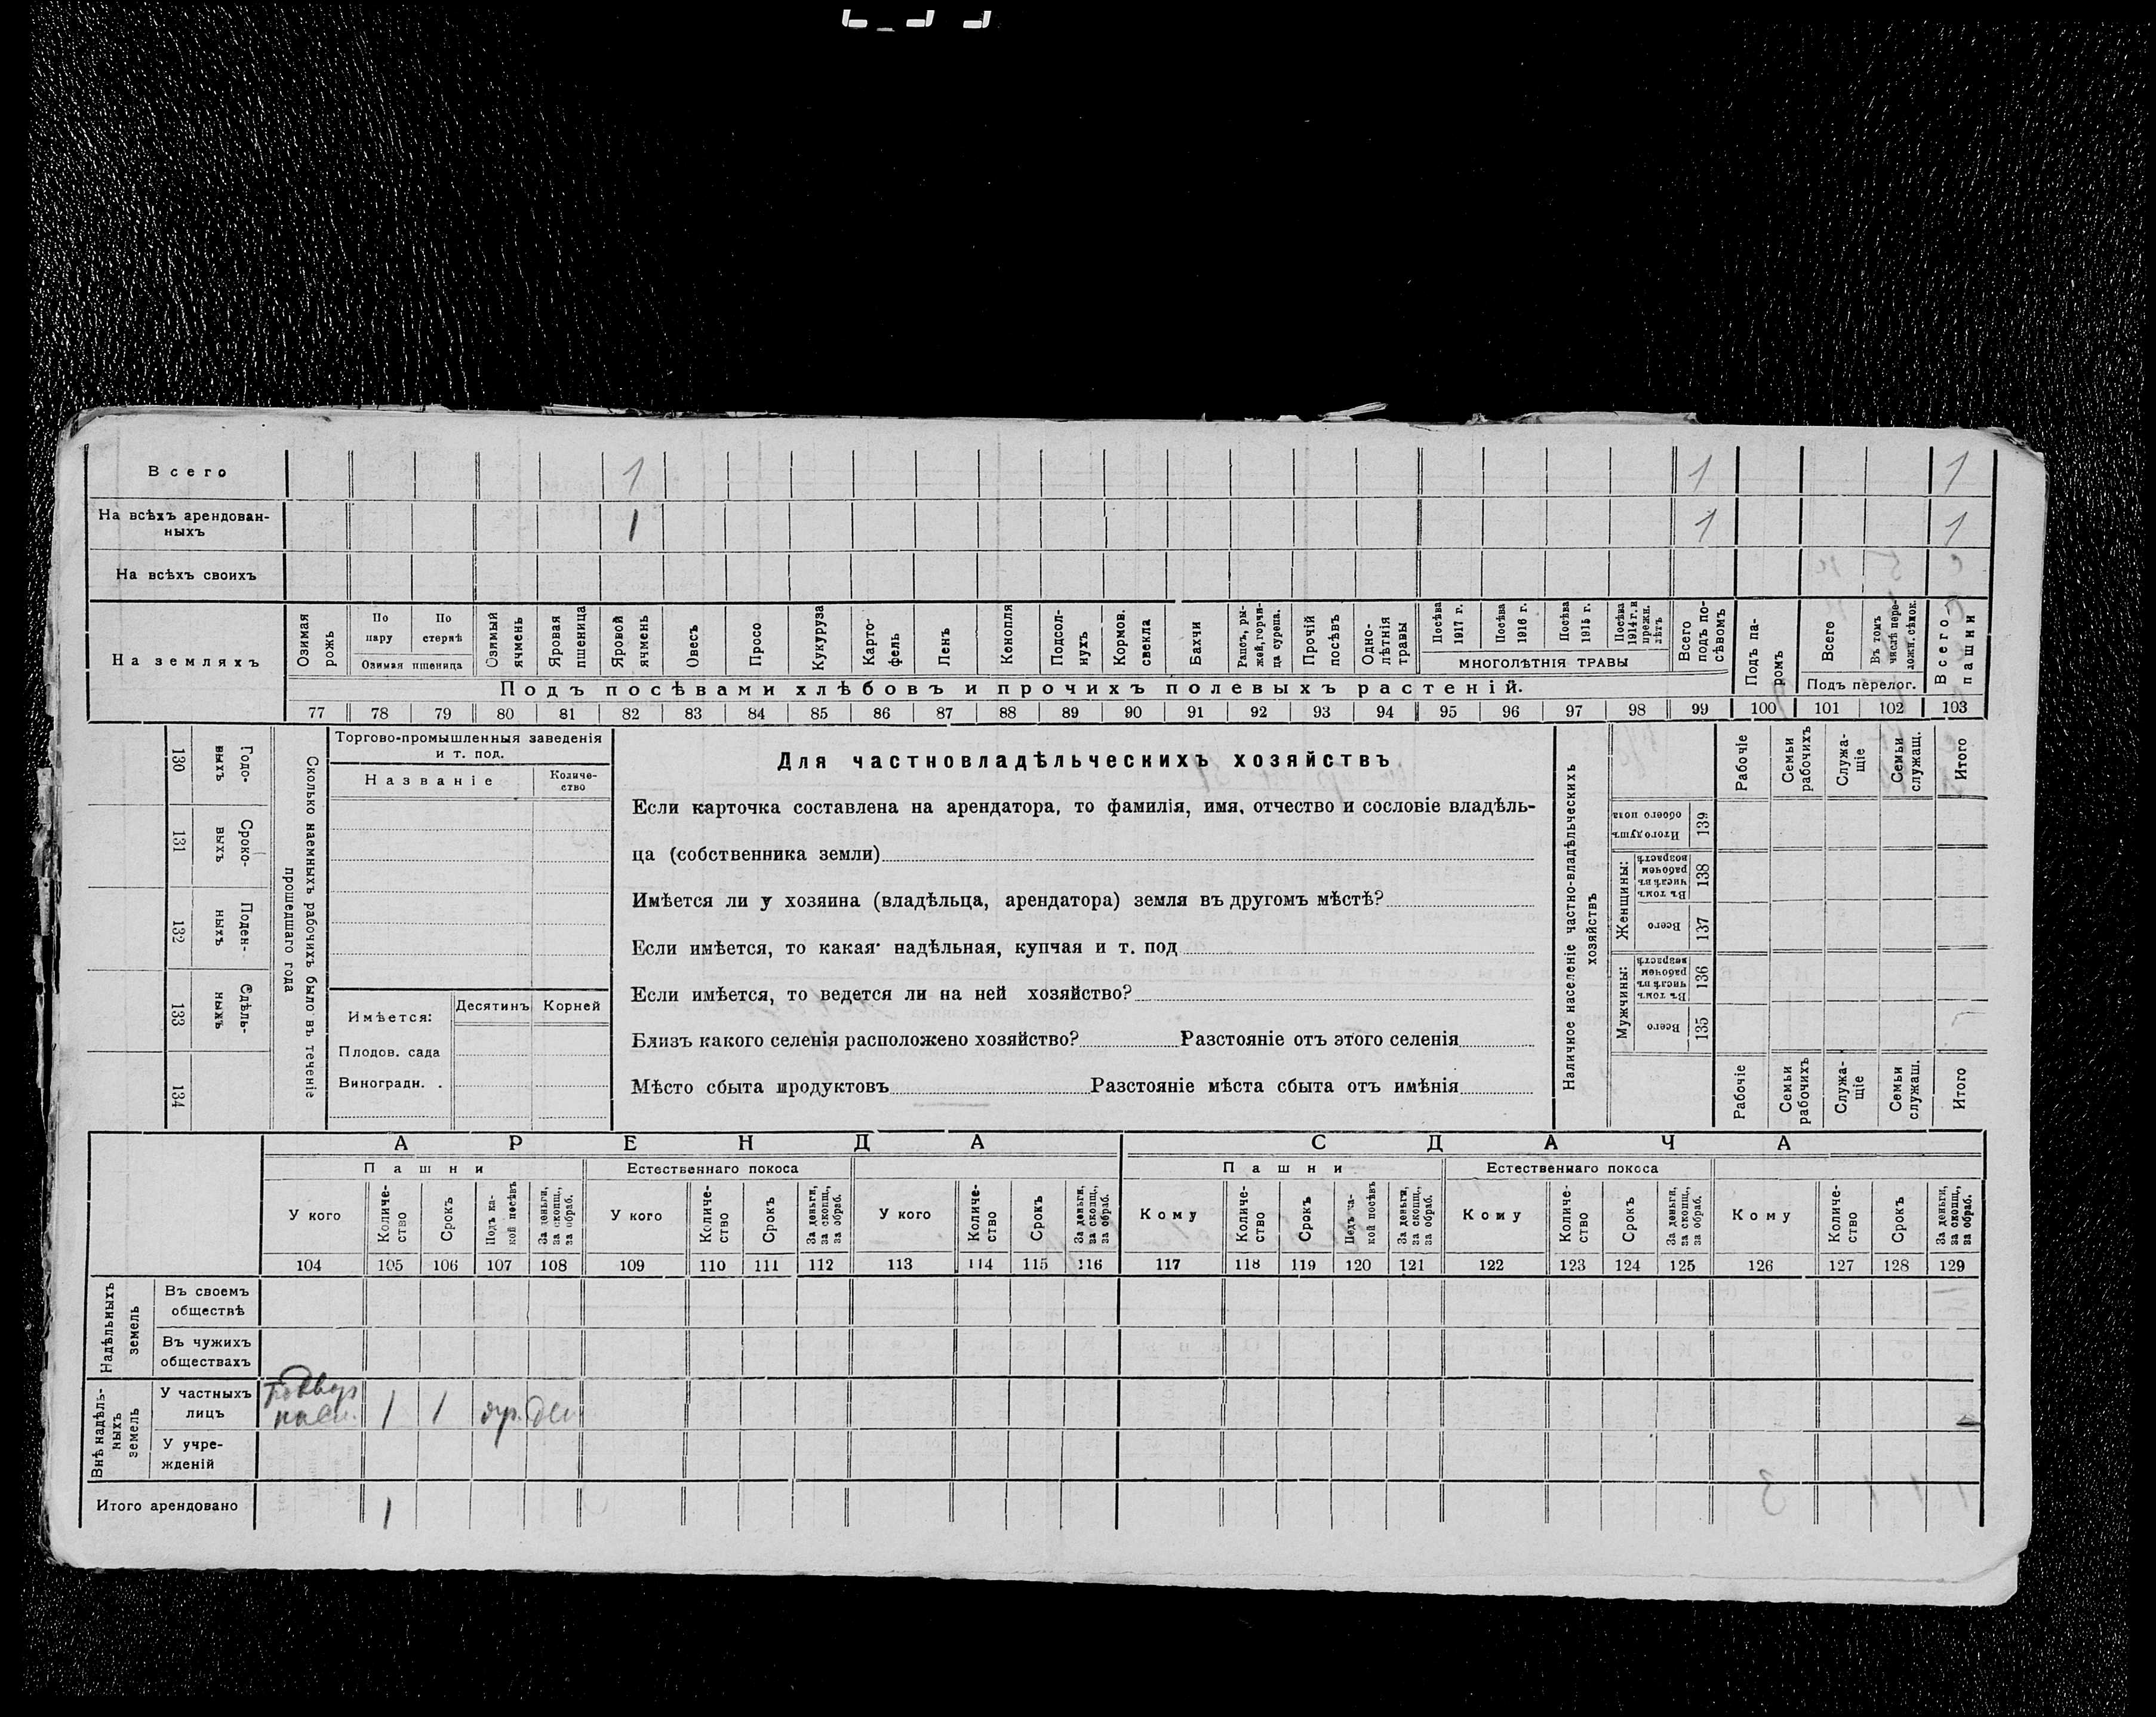 Всего 1 1 1
На всѣхъ арендован-
ныхъ 1 1 1
На всѣхъ своихъ
На земляхъ
Озимая
рожь
По
пару
По
стернѣ
Озимая пшеница
Озимый
ячмень
Яровая
пшеница
Яровой
ячмень
Овесъ
Просо
Кукуруза
Карто-
фель
Ленъ
Конопля
Подсол-
нухъ
Кормов.
свекла
Бахчи
Рапсъ, ры-
жей, горчи-
ца сурепа.
Прочій
посѣвъ
Одно-
лѣтнія
травы
Посѣва
1917 г.
Посѣва
1916 г.
Посѣва
1915 г.
Посѣва
1914 г. и
прежн.
лѣтъ
МНОГОЛѢТНІЯ ТРАВЫ
Всего
подъ по-
сѣвомъ
Подъ па-
ромъ
Всего
Въ томъ
числѣ пере-
ложн. сѣнок.
Подъ перелог.
Всего
пашни
Подъ посѣвами хлѣбовъ и прочихъ полевыхъ растеній.
77 78 79 80 81 82 83 84 85 86 87 88 89 90 91 92 93 94 95 96 97 98 99 100 101 102 103
130 Годо-
выхъ
131 Сроко-
выхъ
132 Поден-
ныхъ
133 Сдѣль-
ныхъ
134
Сколько наемныхъ рабочихъ было въ теченіе
прошедшаго года
Торгово-промышленныя заведенія
и т. под.
Названіе
Количе-
ство
Имѣется:
Десятинъ
Корней
Плодов. сада
Виноградн. .
Для частновладѣльческихъ хозяйствъ
Если карточка составлена на арендатора, то фамилія, имя, отчество и сословіе владѣль-
ца (собственника земли)
Имѣется ли у хозяина (владѣльца, арендатора) земля въ другомъ мѣстѣ?
Если имѣется, то какая: надѣльная, купчая и т. под
Если имѣется, то ведется ли на ней хозяйство?
Близъ какого селенія расположено хозяйство? Разстояніе отъ этого селенія
Мѣсто сбыта продуктовъ Разстояніе мѣста сбыта отъ имѣнія
Наличное населеніе частно-владѣльческихъ
хозяйствъ
Рабочіе
Семьи
рабочихъ
Служа-
щіе
Семьи
служащ.
Итого
Итого душъ
обоего пола
139
Женщины:
Въ томъ
числѣ въ
рабочем
возрастѣ
138
Всего
137
Мужчины:
Въ томъ
числѣ въ
рабочем
возрастѣ
136
Всего
135
Рабочіе
Семьи
рабочихъ
Служа-
щіе
Семьи
служащ.
Итого
АРЕНДА
СДАЧА
Пашни
Естественнаго покоса
Пашни
Естественнаго покоса
У кого
Количе-
ство
Срокъ
Подъ ка-
кой посѣвъ
За деньги,
за скопщ.,
за обраб.
У кого
Количе-
ство
Срокъ
За деньги,
за скопщ.,
за обраб.
У кого
Количе-
ство
Срокъ
За деньги,
за скопщ.,
за обраб.
Кому
Количе-
ство
Срокъ
Подъ ка-
кой посѣвъ
За деньги,
за скопщ.,
за обраб.
Кому
Количе-
ство
Срокъ
За деньги,
за скопщ.,
за обраб.
Кому
Количе-
ство
Срокъ
За деньги,
за скопщ.,
за обраб.
104 105 106 107 108 109 110 111 112 113 114 115 116 117 118 119 120 121 122 123 124 125 126 127 128 129
Надѣльныхъ
земель
Въ своемъ
обществѣ
Въ чужихъ
обществахъ
Внѣ надѣль-
ныхъ
земель
У частныхъ
лицъ 1 1
У учре-
жденій
Итого арендовано 1